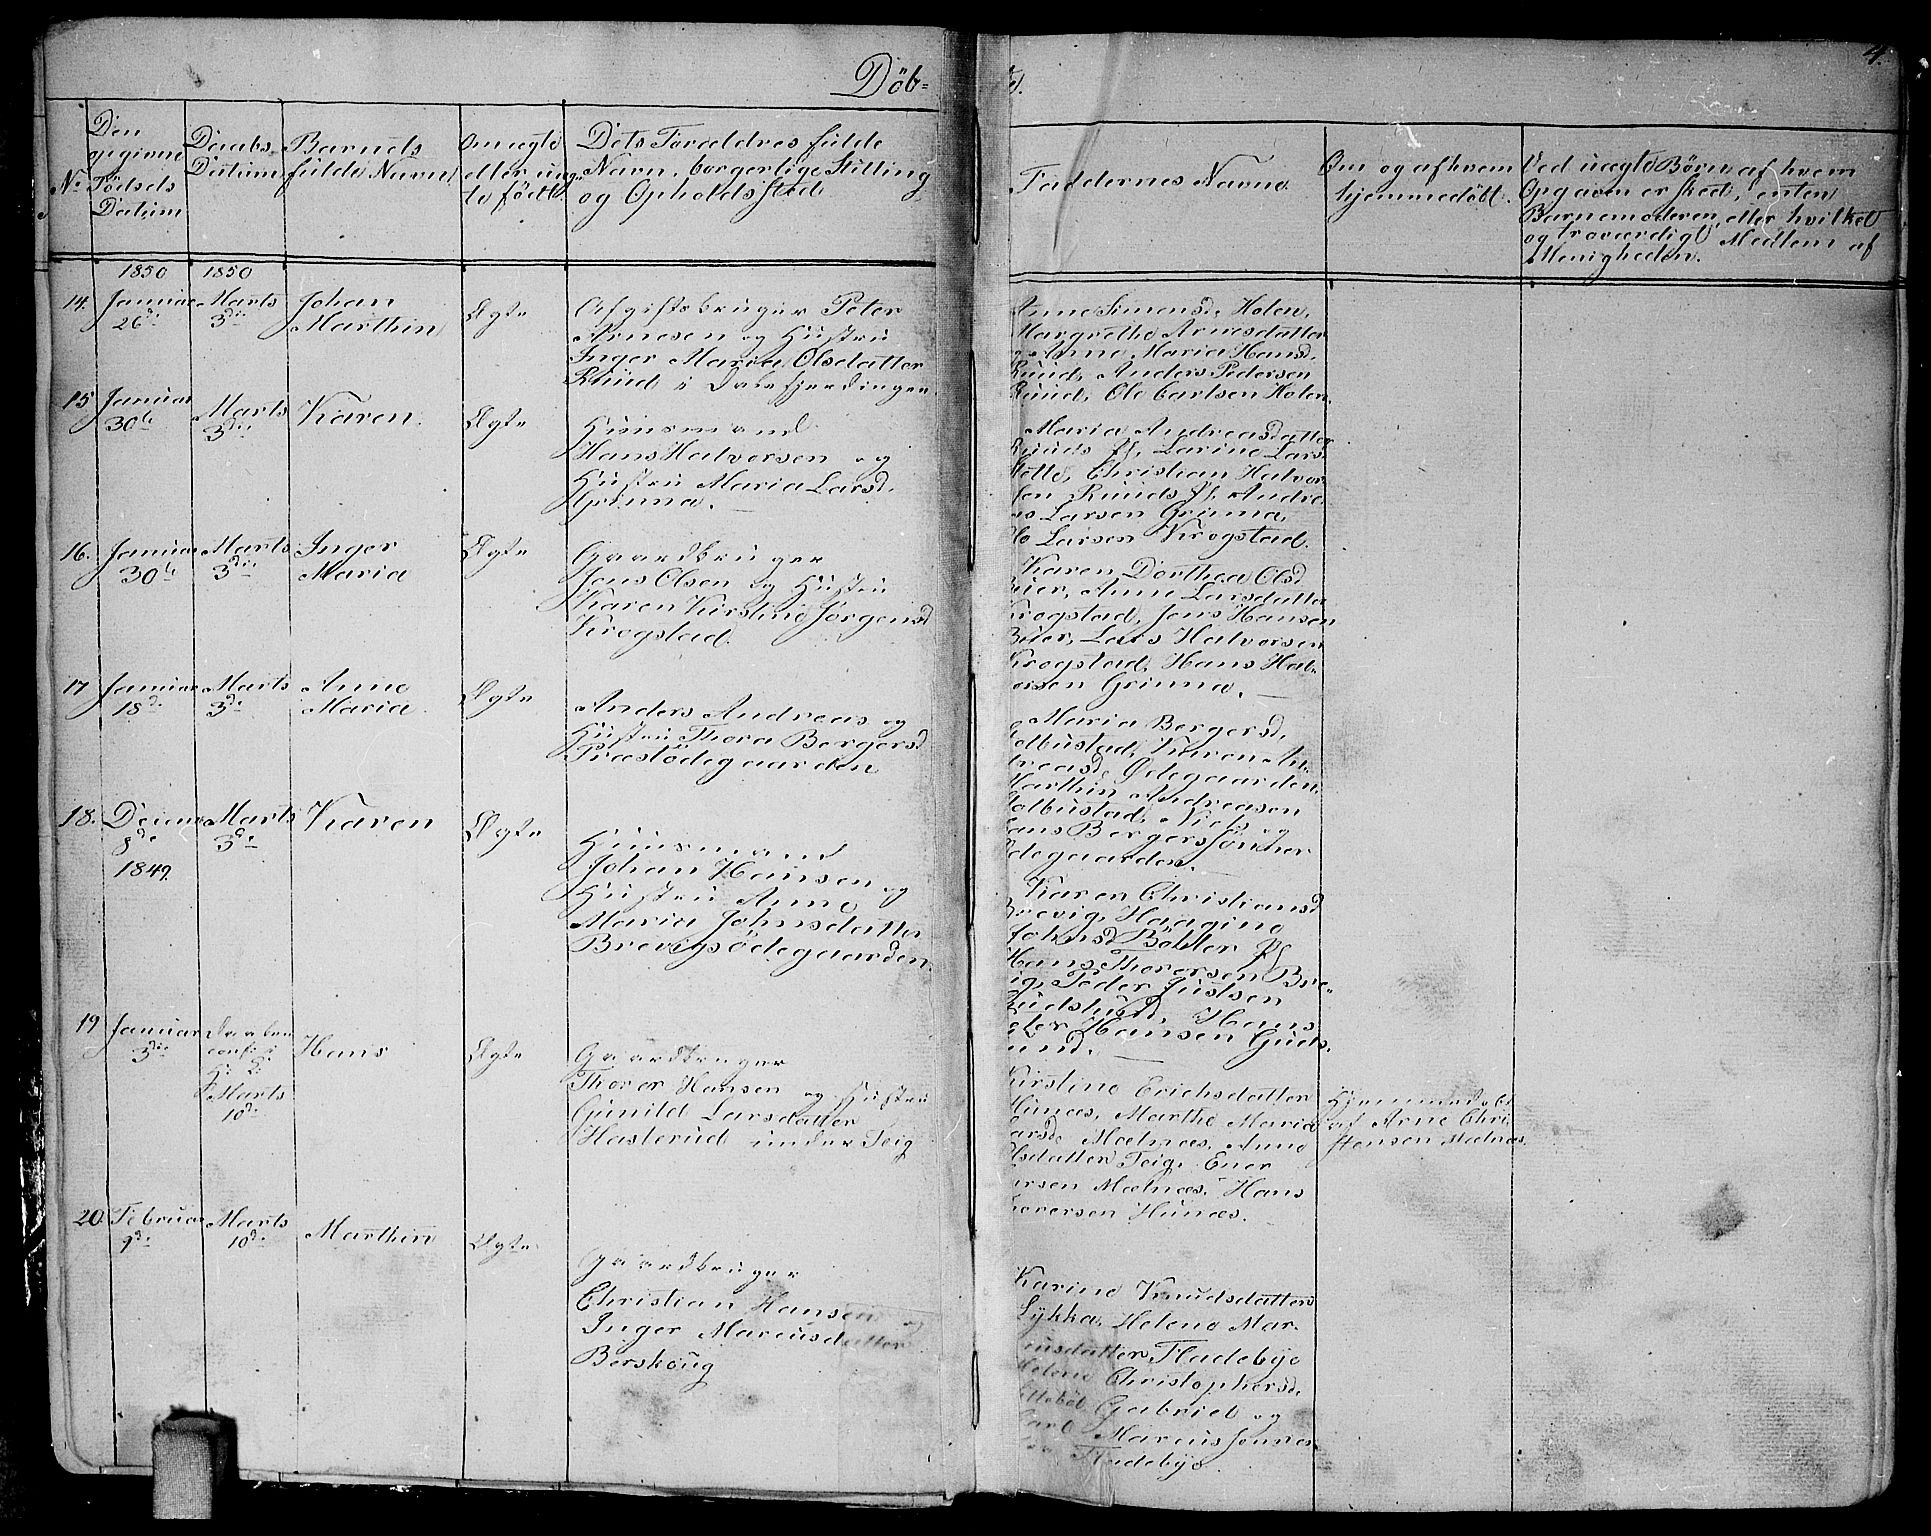 Döb=
te.
4.
Den opgivne Födsels Datum
Daabs Datum
Barnets fulde Navn
Om ægte eller uægte födt.
Dets Forældres fulde Navn, borgerlige Stilling og Opholdssted
Faddernes Navne.
Om og af hvem hjemmedöbt.
Ved uægte Börn af hvem Opgaven er skeet, enten Barnemoderen, eller hvilket og troværdigt Medlem af Menigheden.
No
1850 1850
14. Januar 26de
Marts 3die
Johan Marthin
Ægte
Afgiftsbruger Peter
Arnesen og Hustru
Inger Maria Olsdatter
Ruud i Dalefjerdingen.
Anne Simensd. Holen,
Margrethe Arnesdatter
Anne Maria Hansd.
Ruud, Anders Pedersen
Ruud, Ole Carlsen Holen.
15 Januar 30te
Marts 3die
Karen
Ægte
Huusmand
Hans Halvorsen og
Hustru Maria Larsd.
Grinna.
Maria Andreasdatter
Ruuds Larine Lars
Christian Halvor
sen Ruuds Andre
Larsen Grinna,
Ole Larsen Krogstad.
16. Januar 30te
Marts 3die
Inger Maria
Ægte
Gaardbruger
Jens Olsen og Hustru
Karen Kirstine Jörgensd
Krogstad.
Karen Dorthea Olsd
Anne Larsdatter
Krogstad, Jens Hansen
Lars Halvorsen
Krogstad, Hans Hal-
vorsen Grinna.
17 Januar 18de
Marts 3de
Anne Maria
Ægte
Anders Andreas og
Hustru Thora Bergersd
Præstödegaarden
Maria Bergersd,
Karen An-
dreasd, Ödegaarden,
Marthin Andreasen
Niels og
Hans Bergerssönner
Ödegaarden.
18. Decemb 8de 1849.
Marts 3de
Karen
Ægte
Huusmand
Johan Hansen og
Hustru Anne
Maria Johnsdatter
Brevigsödegaarden.
Karen Christiansd
Brevig, Haagine
Johnsd Böhler
Hans Thorersen Bre-
vig, Peder Justsen
Hans
Peter Hansen Guds-
lund.
19 Januar 3die
Daaben conf. Marts 10de
Hans
Ægte
Gaardbruger
Thorer Hansen og Hustru
Gunild Larsdatter
Hasterud under Teig
Kirstine Erichsdatter
Hunæs, Marthe Maria
Larsd. Mælnæs, Anne
Olsdatter Teig, Ener
Larsen Mælnæs, Hans
Thorersen Hunæs.
Hjemmedöbt
af Arne Chri
stensen Mælnæs
20 Februar 9de
Marts 10de
Marthin
Ægte
Gaardbruger
Christian Hansen og
Inger Marcusdatter
Berskoug
Karine Knudsdatter
Lykka, Helene Mar-
cusdatter, Fladebye
Helene Christophersd.
Gabriel og
Carl Marcussönner
Fladebye.